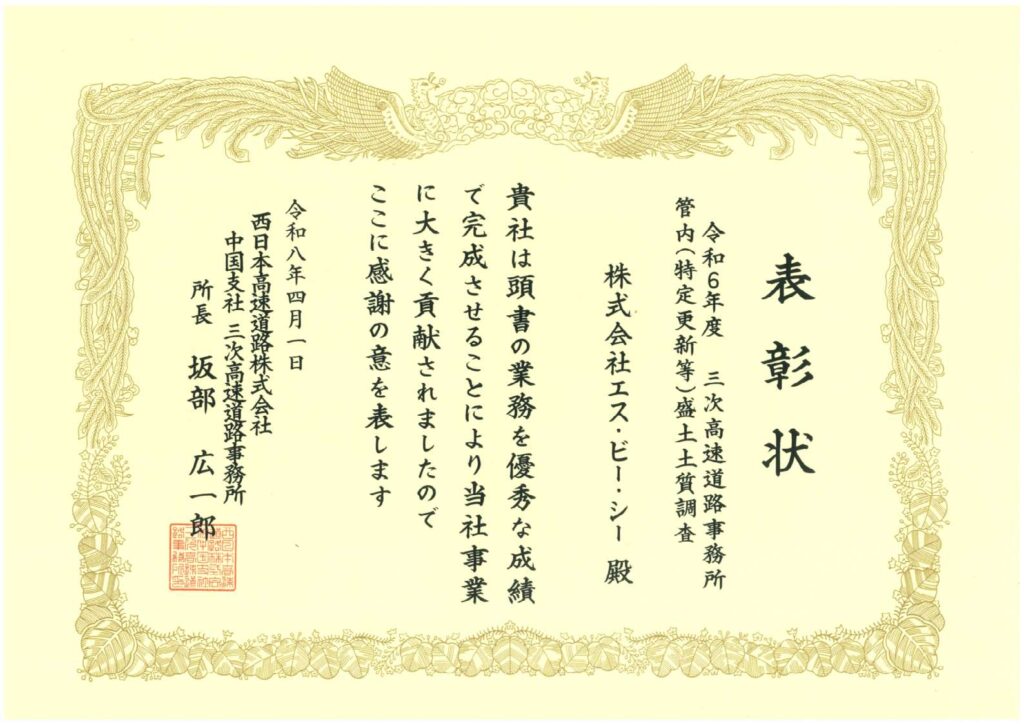 表彰状
令和6年度 三次高速道路事務所
管内(特定更新等)盛土土質調査
株式会社エス・ビー・シー 殿
貴社は頭書の業務を優秀な成績
で完成させることにより当社事業
に大きく貢献されましたので
ここに感謝の意を表します
令和八年四月一日
西日本高速道路株式会社
中国支社 三次高速道路事務所
所長 坂部 広一郎